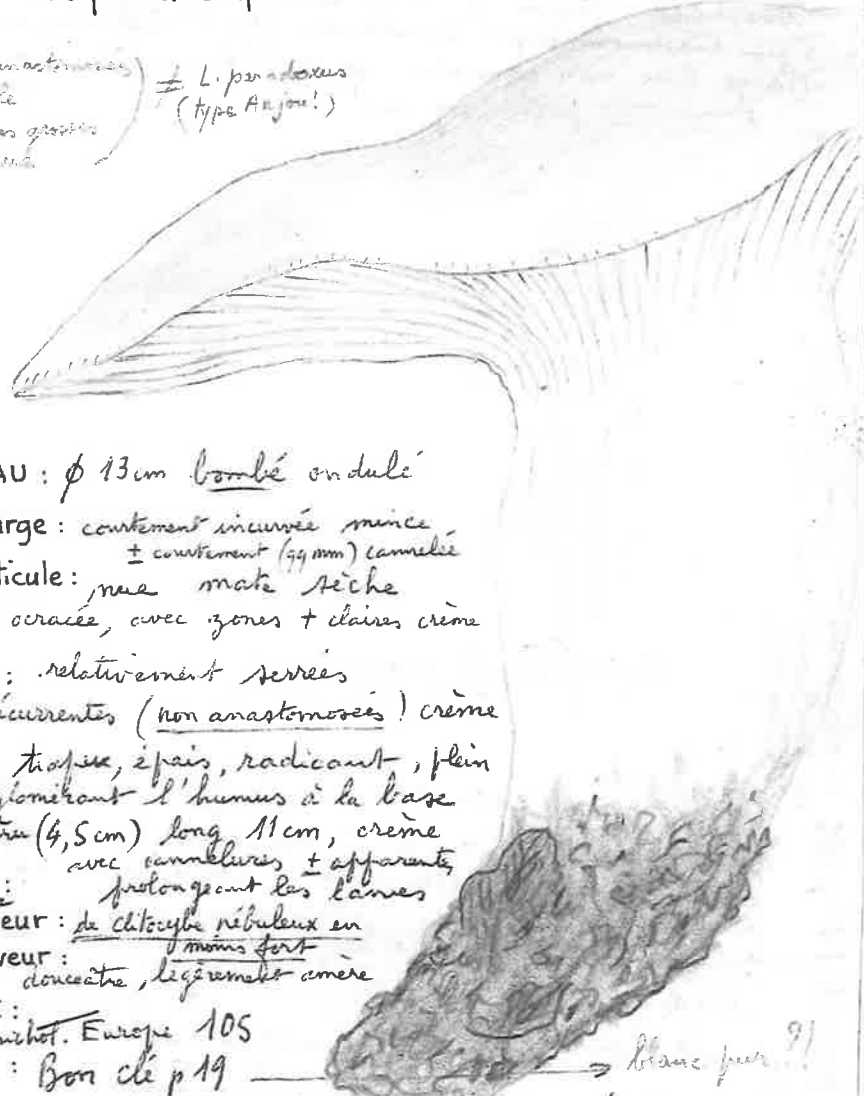 anastomosées
≠ L. paradoxus
(type Anjou!)
grosses
AU : ϕ 13cm bombé ondulé
arge : courtement incurvée mince
± courtement (qq mm) cannelée
ticule : nue mate sèche
ocracée, avec zones + claires crème
: relativement serrées
écurrentes (non anastomosées ! crème
trapu, épais, radicant, plein
glomérant l'humus à la base
(4,5cm) long 11cm, crème
avec cannelures ± apparentes
prolongeant les lames
eur : de clitocybe nébuleux en
moins fort
veur :
douceâtre, légèrement amère
Europe 105
: Bon clé p 19 → blanc pur